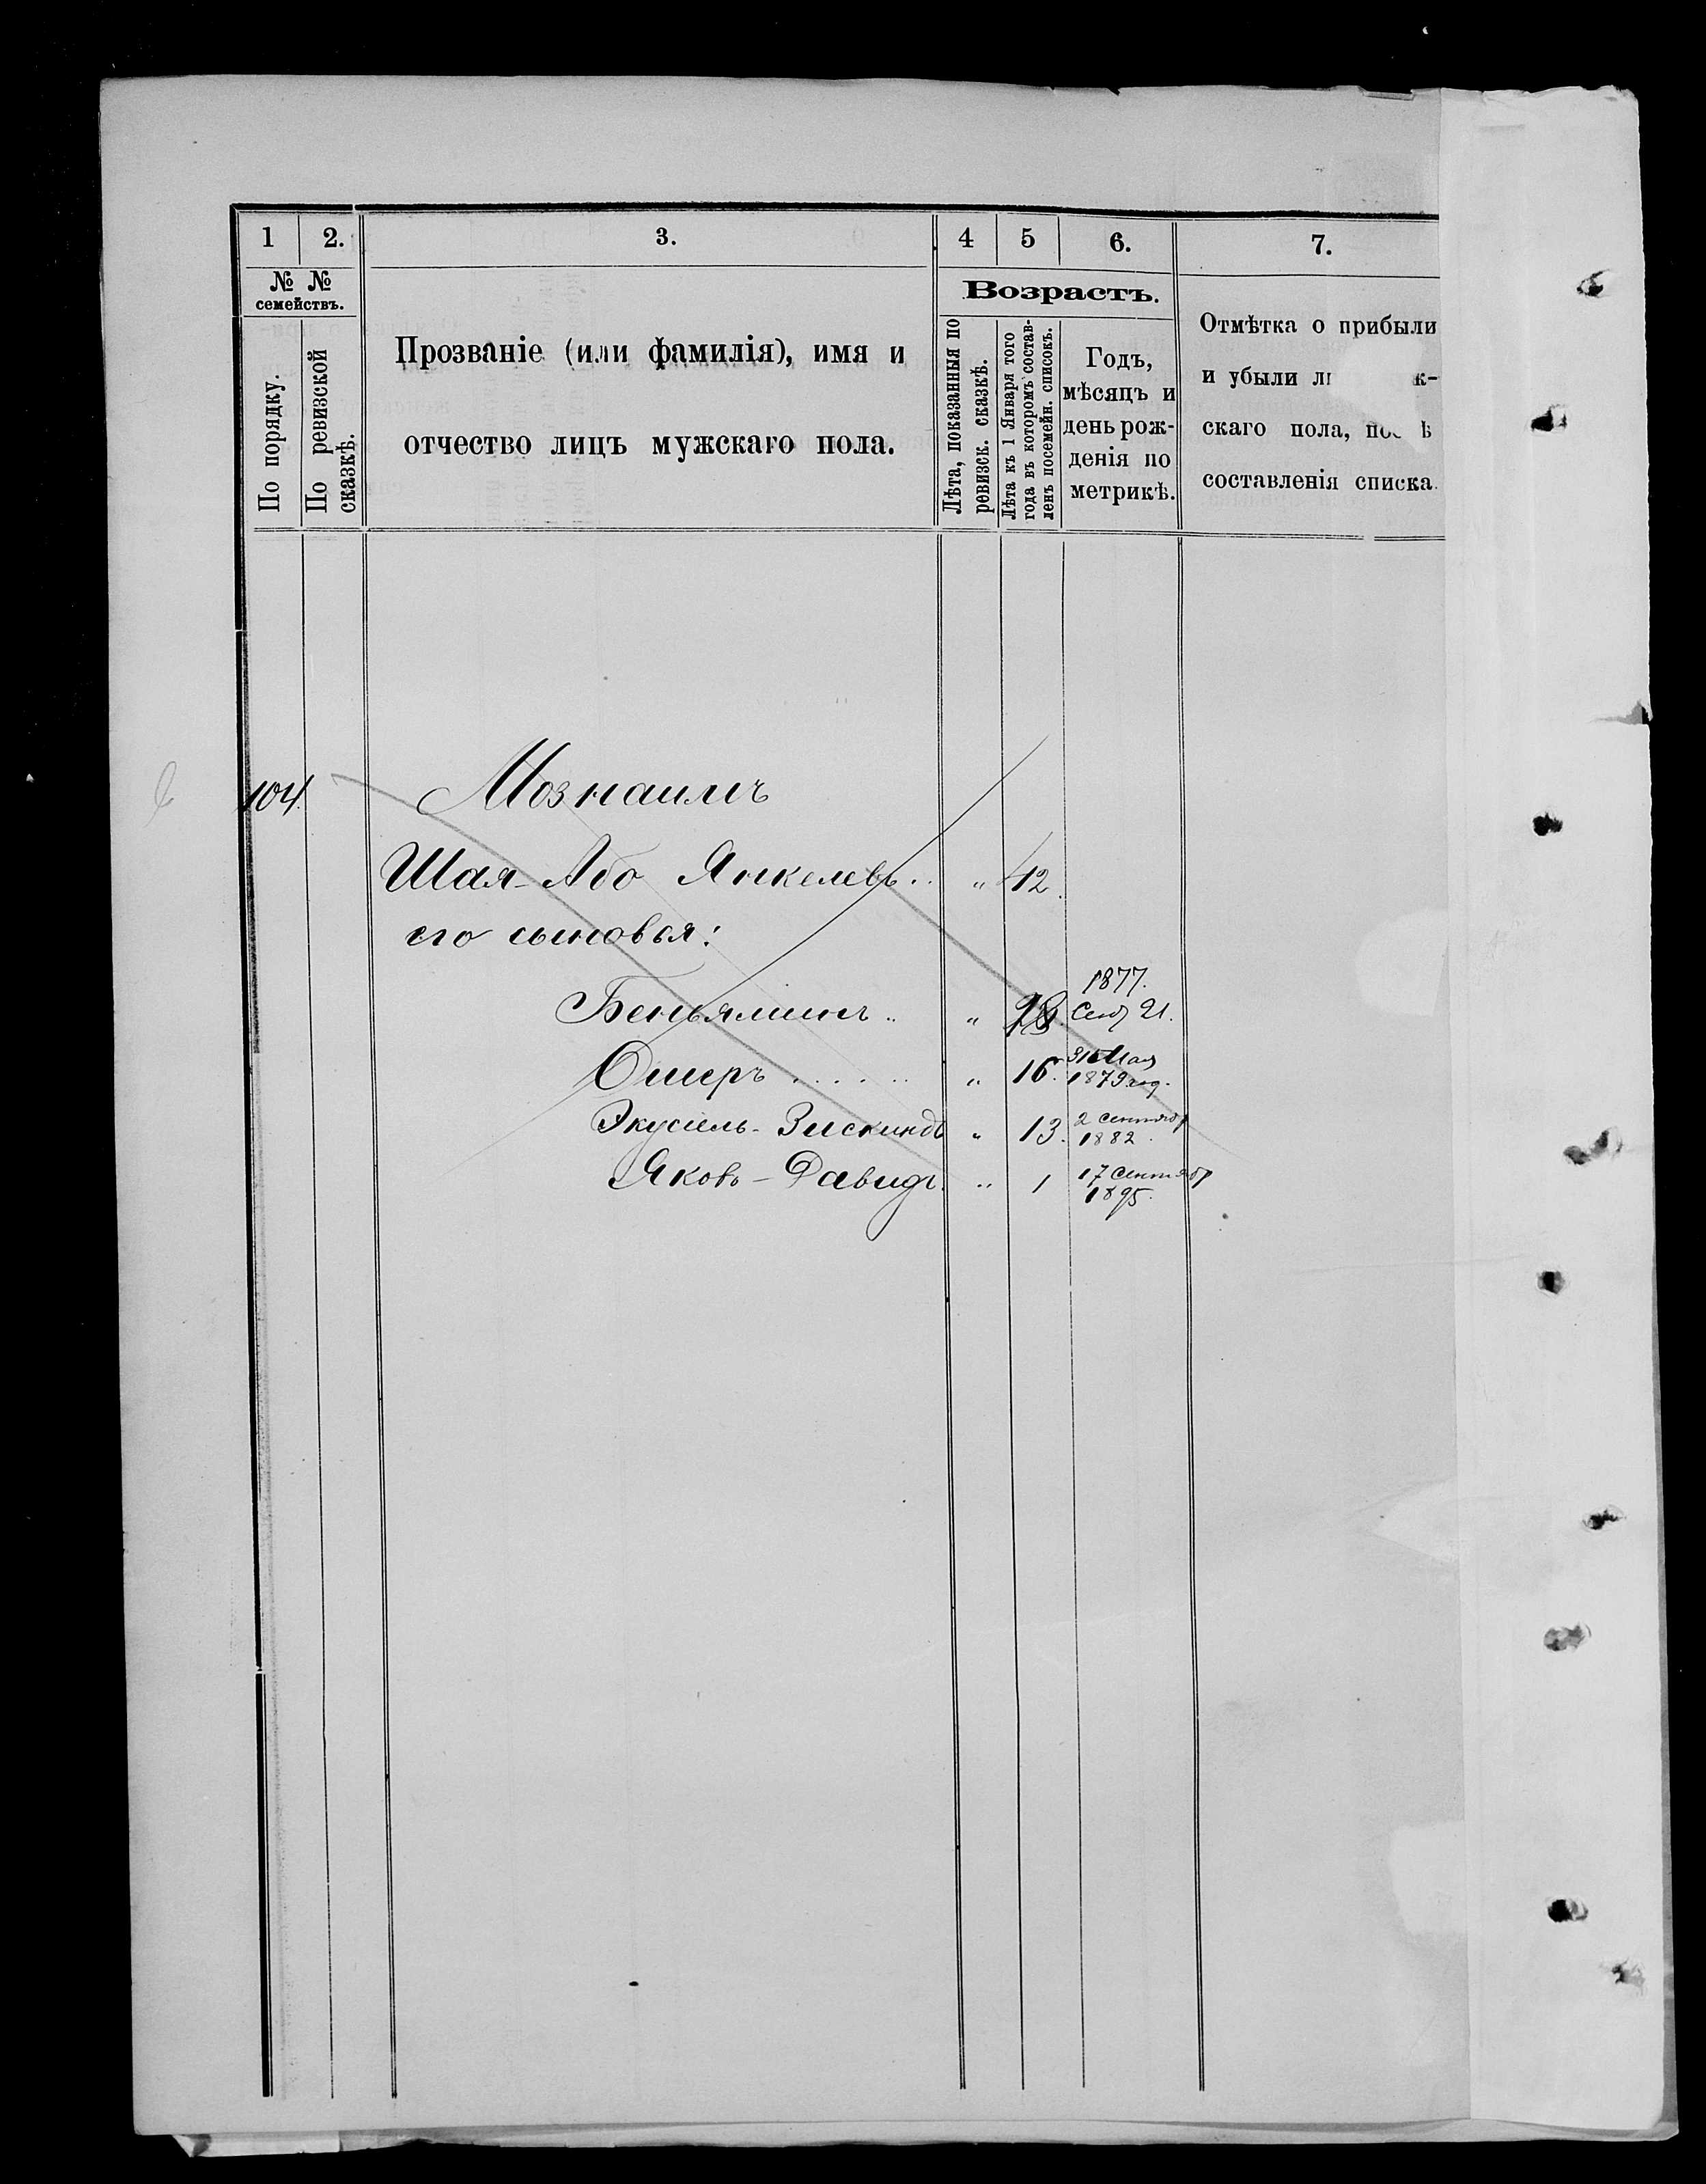 1 2. 3. 4 5 6. 7.
№ №
семействъ.
По порядку.
По ревизской
сказкѣ.
Прозваніе (или фамилія), имя и
отчество лицъ мужскаго пола.
Возрастъ.
Лѣта, показанныя по
ревизск. сказкѣ.
Лѣта къ 1 Января того
года въ которомъ состав-
ленъ посемейн. списокъ.
Годъ,
мѣсяцъ и
день рож-
денія по
метрикѣ.
Отмѣтка о прибыли
и убыли к-
скаго пола,
составленія списка.
104. Мознаимъ
Шая-Або Янкелевъ.. " 42.
его сыновья:
1877.
Беньяминъ.. " Сен 21.
Ошеръ . . . . . . " 16. 31 Мая
1879 год.
Экусіель-Зискиндъ " 13. 2 сентябр
1882.
Яковъ-Давидъ. " 1 17 Сентябр
1895.